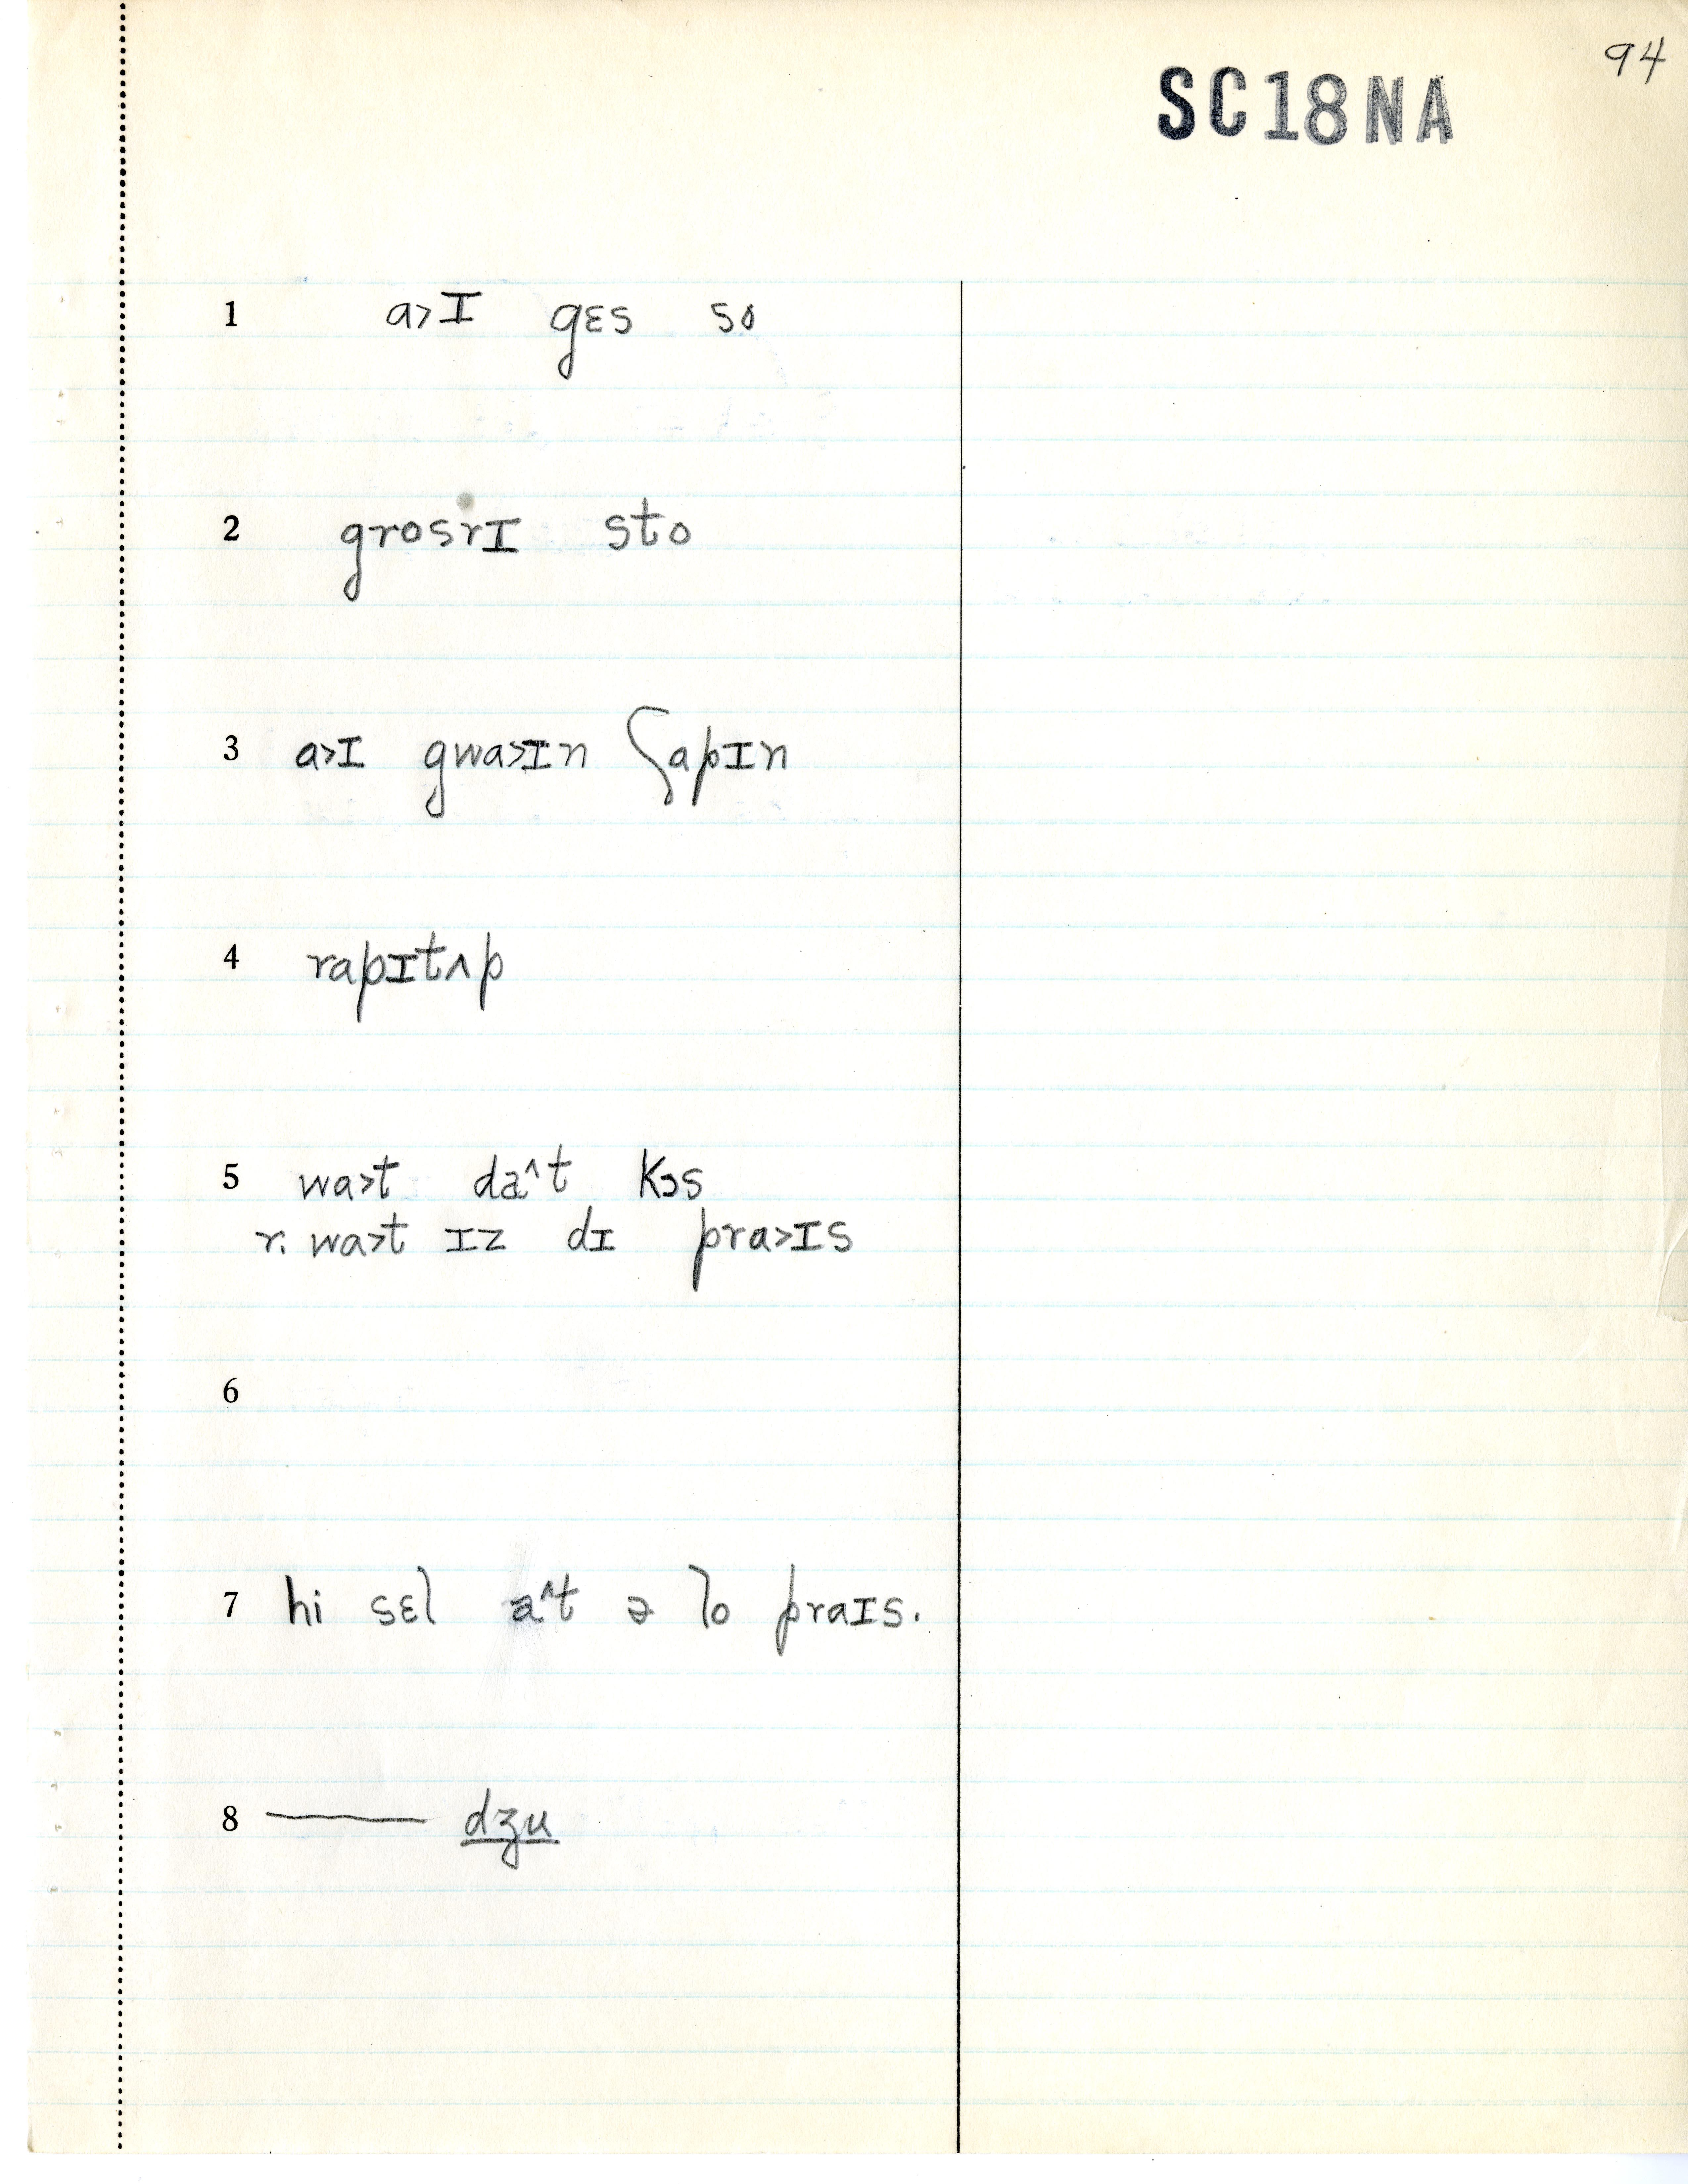 94
SC18NA
1 a>ɪ gɛs so
2 grosrɪ sto
3 a>ɪ gwa>ɪn ʃapɪn
4 rapɪtʌp
5 wa>t da^t kɔs
r. wa>t ɪz dɪ pra>ɪs
6
7 hi sɛl a^t ə lo praɪs.
8 —— dʒu